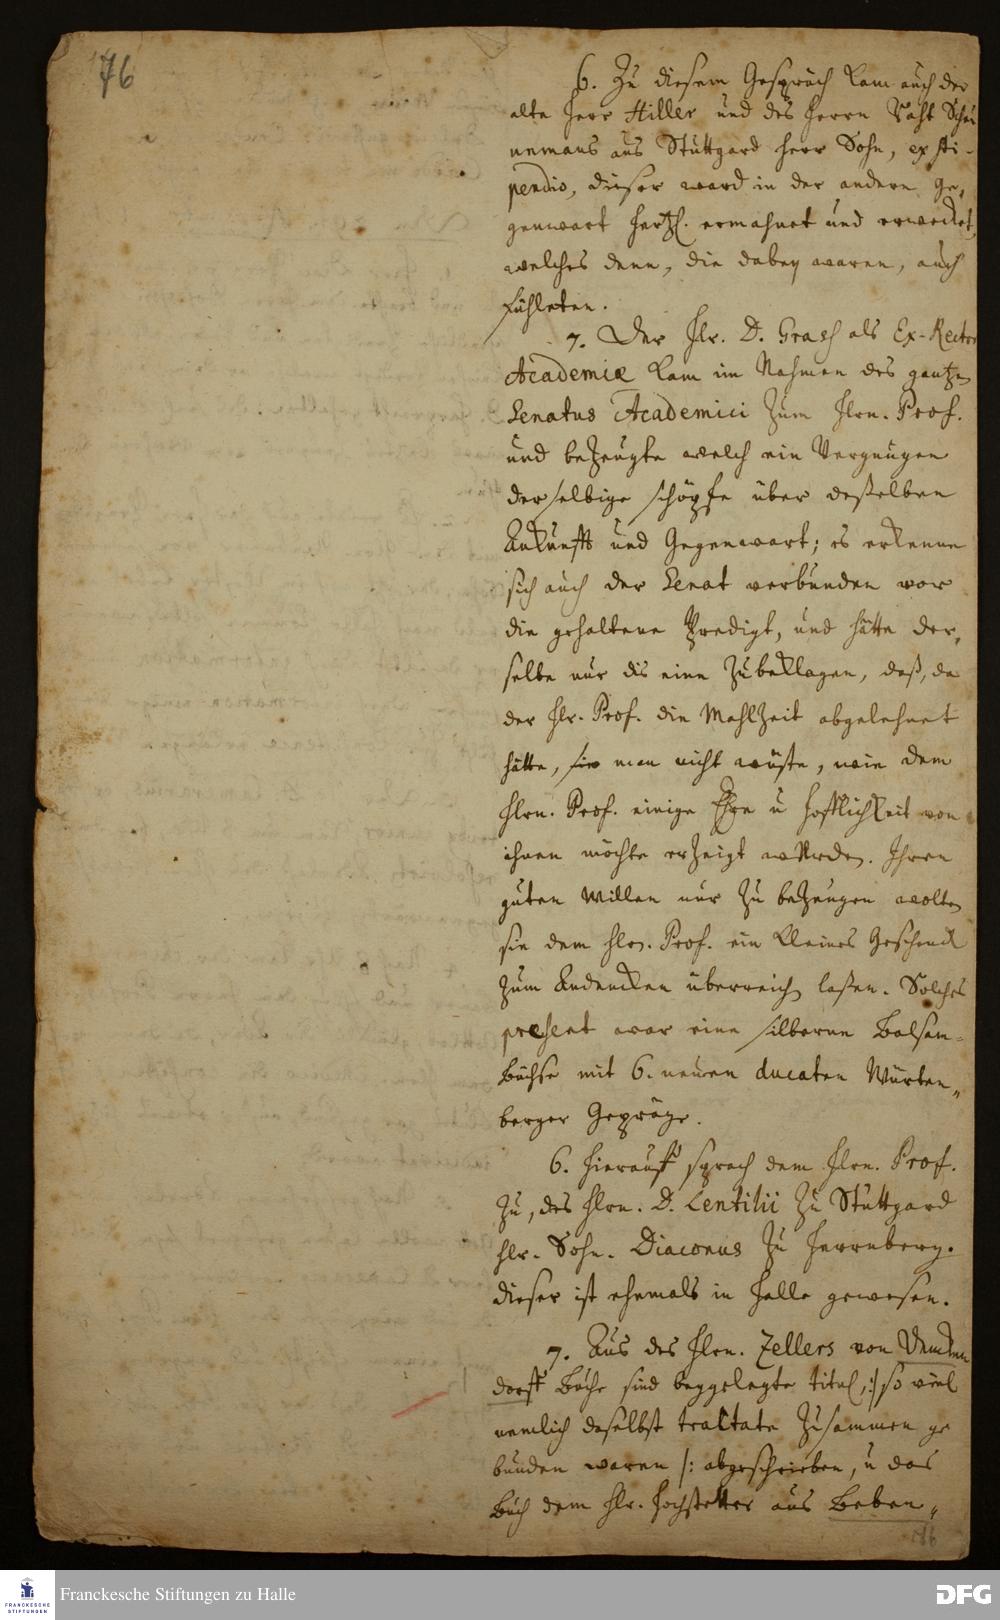 76
6. Zu diesem Gespräch kam auch der
alte Herr Hiller und des Herrn Raht Schu
nemans aus Stuttgard Herr Sohn, ex sti-
pendio, dieser ward in der andern Ge,
genwart hertzl. ermahnet und erwecket,
welches denn, die dabey waren, auch
fühleten.
7. Der Hr. D. Grass als Ex-Rector
Academiæ kam im Nahmen des gantzen
Senatus Academici zum Hrn. Prof.
und bezeugte welch ein Vergnugen
derselbige schöpfe über deßelben
Ankunfft und Gegenwart; es erkenne
sich auch der Senat verbunden vor
die gehaltene Predigt, und hätte der,
selbe nur dis eine zubeklagen, daß, da
der Hr. Prof. die Mahlzeit abgelehnet
hätte, sie man nicht wüste, wie dem
Hrn. Prof. einige Ehre u Hofflichkeit von
ihnen möchte erzeigt werden. Ihren
guten Willen nur zu bezeugen wolten
sie dem Hrn. Prof. ein kleines Geschenck
zum Andencken überreichen laßen. Solches
present war eine silberne Balsam-
Büchse mit 6. neuen ducaten Würten„
berger Gepräge.
6. Hierauff sprach dem Hrn. Prof.
zu, des Hrn. D. Lentilii zu Stuttgard
Hr. Sohn. Diaconus zu Herrnberg.
dieser ist ehemals in Halle gewesen.
7. Aus des Hrn. Zellers von
dorff Buche sind beygelegte titul, :/ so viel
nemlich daselbst tractate zusammen ge
bunden waren /: abgeschrieben, u das
Buch dem Hr. Hochstetter aus Beben„
76
Franckesche Stiftungen zu Halle
FRANCKESCHE
STIFTUNGEN
DFG